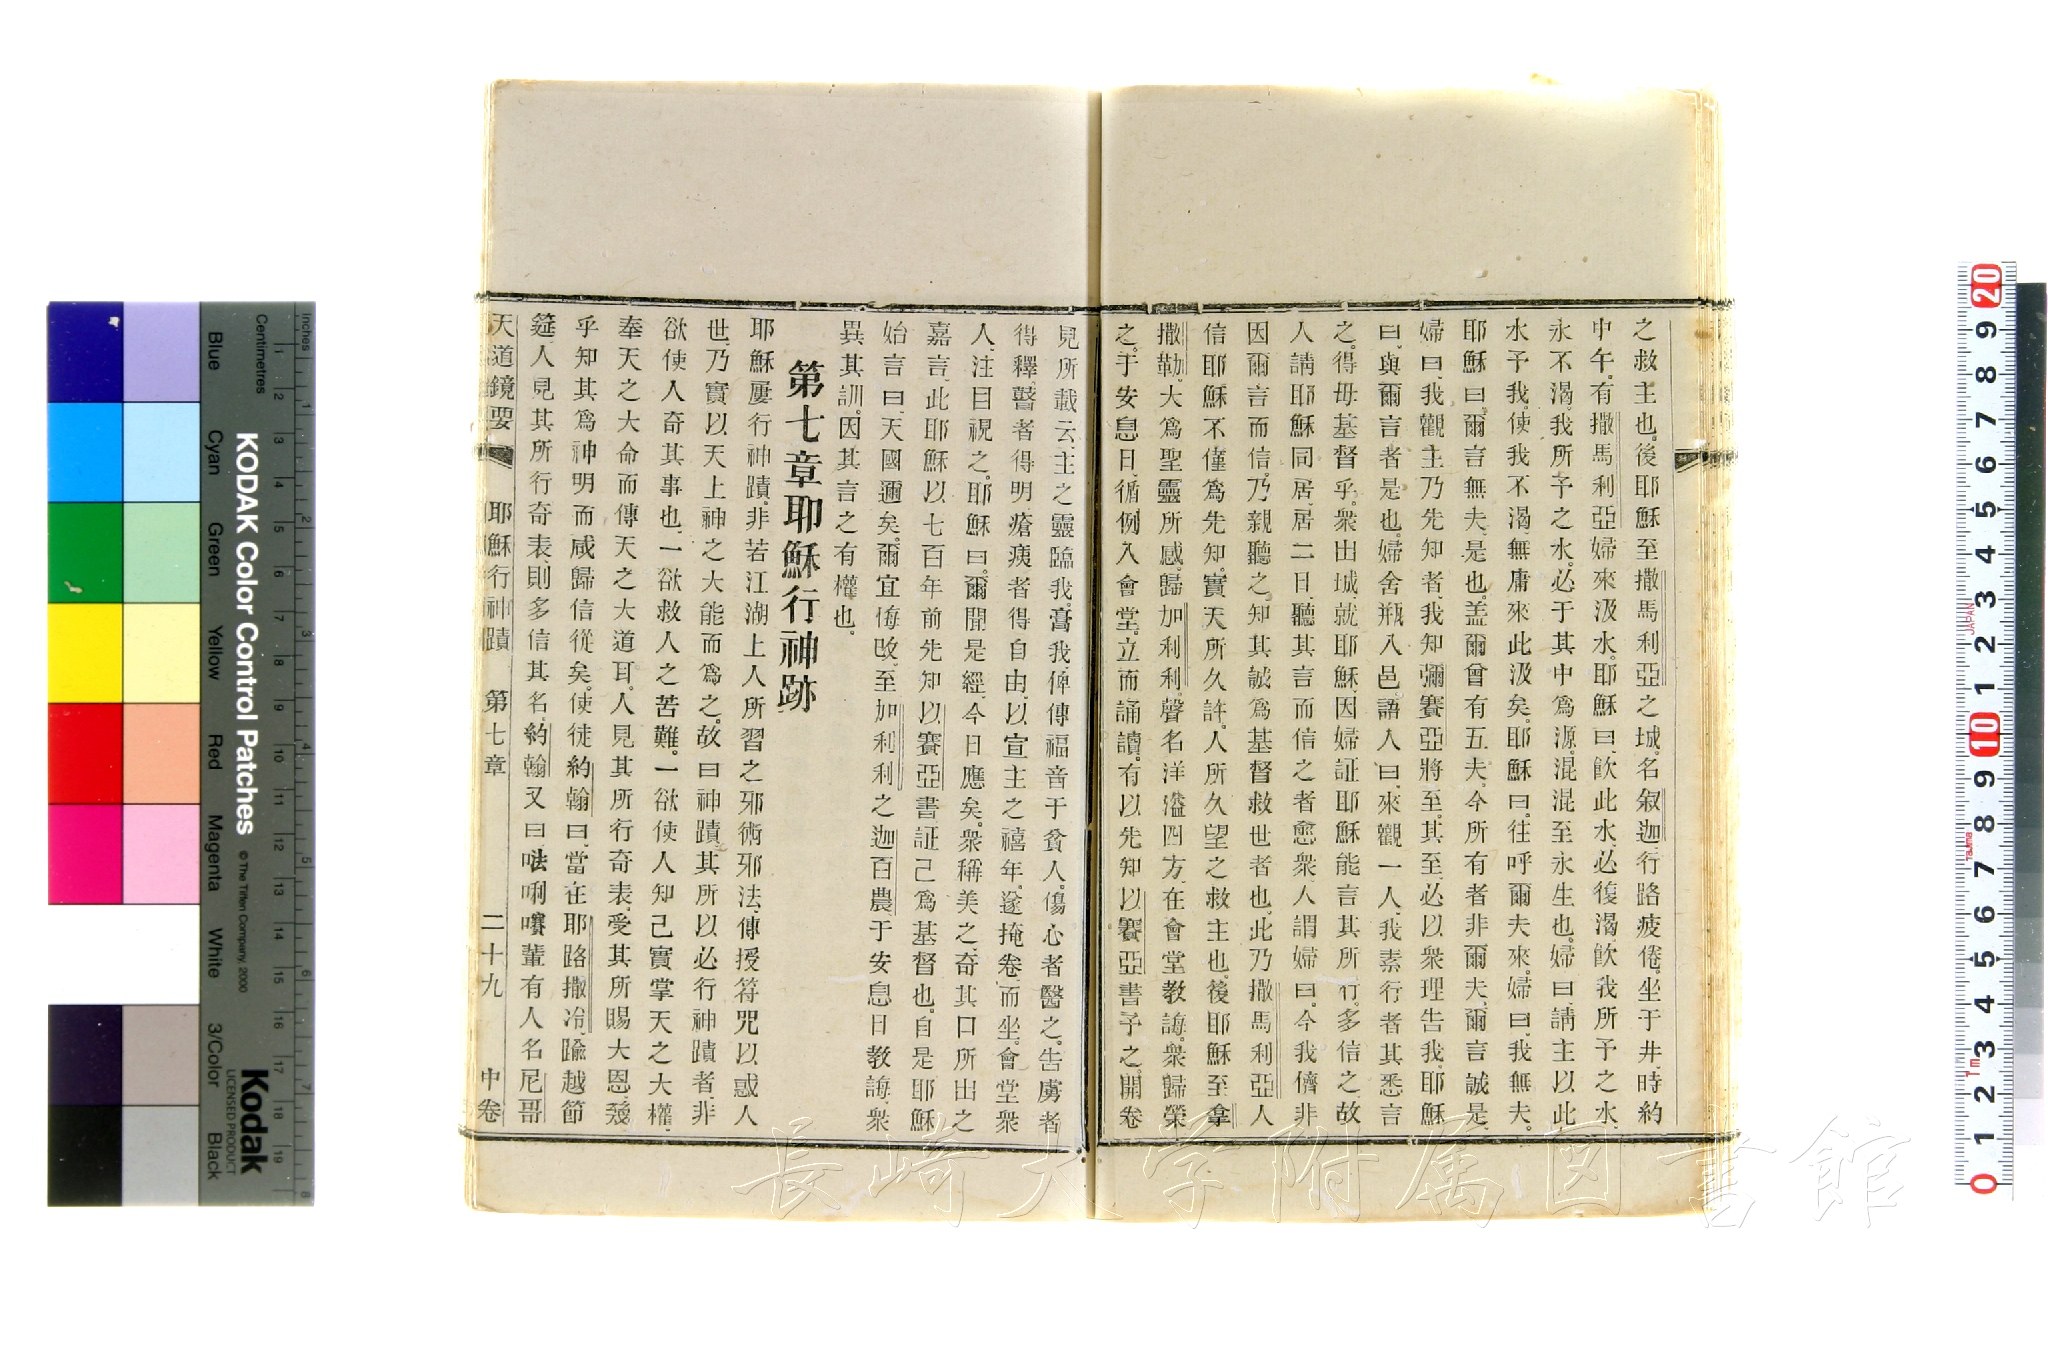 之救主也。後耶穌至撒馬利亞之城。名叙迦。行路疲倦。坐于井。時約
中午。有撒馬利亞婦來汲水。耶穌曰、飮此水、必復渴、飮我所予之水、
永不渴。我所予之水。必于其中爲源。混混至永生也。婦曰、請主以此
水予我。使我不渴、無庸來此汲矣。耶穌曰。往呼爾夫來。婦曰、我無夫。
耶穌曰。爾言無夫。是也。盖爾曾有五夫。今所有者非爾夫。爾言誠是。
婦曰、我觀主乃先知者、我知彌賽亞將至、其至、必以衆理告我、耶穌
曰、與爾言者是也。婦舍瓶入邑、語人曰、來觀一人、我素行者其悉言
之。得毋基督乎。衆出城、就耶穌、因婦証耶穌能言其所行、多信之、故
人請耶穌同居、居二日、聽其言而信之者愈衆、人謂婦曰。今我儕非
因爾言而信、乃親聽之、知其誠爲基督救世者也。此乃撒馬利亞人
信耶穌不僅爲先知。實天所久許。人所久望之救主也。後耶穌至拿
撒勒。大爲聖靈所感。歸加利利。聲名洋溢四方、在會堂教誨。衆歸榮
之。于安息日、循例入會堂。立而誦讀。有以先知以賽亞書予之。開卷
見所載云、主之靈臨我。膏我、俾傳福音于貧人。傷心者醫之。告虜者
得釋、瞽者得明、瘡痍者得自由、以宣主之禧年。遂掩卷而坐。會堂衆
人、注目視之。耶穌曰。爾聞是經、今日應矣。衆稱美之、奇其口所出之
嘉言、此耶穌以七百年前先知以賽亞書証己爲基督也。自是耶穌
始言曰、天國邇矣。爾宜悔改、至加利利之迦百農。于安息日教誨、衆
異其訓。因其言之有權也。
第七章耶穌行神跡
耶穌屢行神蹟、非若江湖上人所習之邪術邪法、傳授符咒以惑人
世、乃實以天上神之大能而爲之。故曰神蹟、其所以必行神蹟者、非
欲使人奇其事也、一欲救人之苦難。一欲使人知己實掌天之大權、
奉天之大命而傳天之大道耳。人見其所行奇表、受其所賜大恩、幾
乎知其爲神明而咸歸信從矣。使徒約翰曰、當在耶路撒冷、踰越節
筵、人見其所行奇表、則多信其名、約翰又曰、㕵唎嚽輩有人名尼哥
天道鏡要 耶穌行神蹟 第七章 二十九 中卷
KODAK Color Control Patches
© The Tiffen Company, 2000
Kodak
LICENSED PRODUCT
inches
Centimetres
Blue
Cyan
Green
Yellow
Red
Magenta
White
3/Color
Black
長崎大学附属図書館
JAPAN